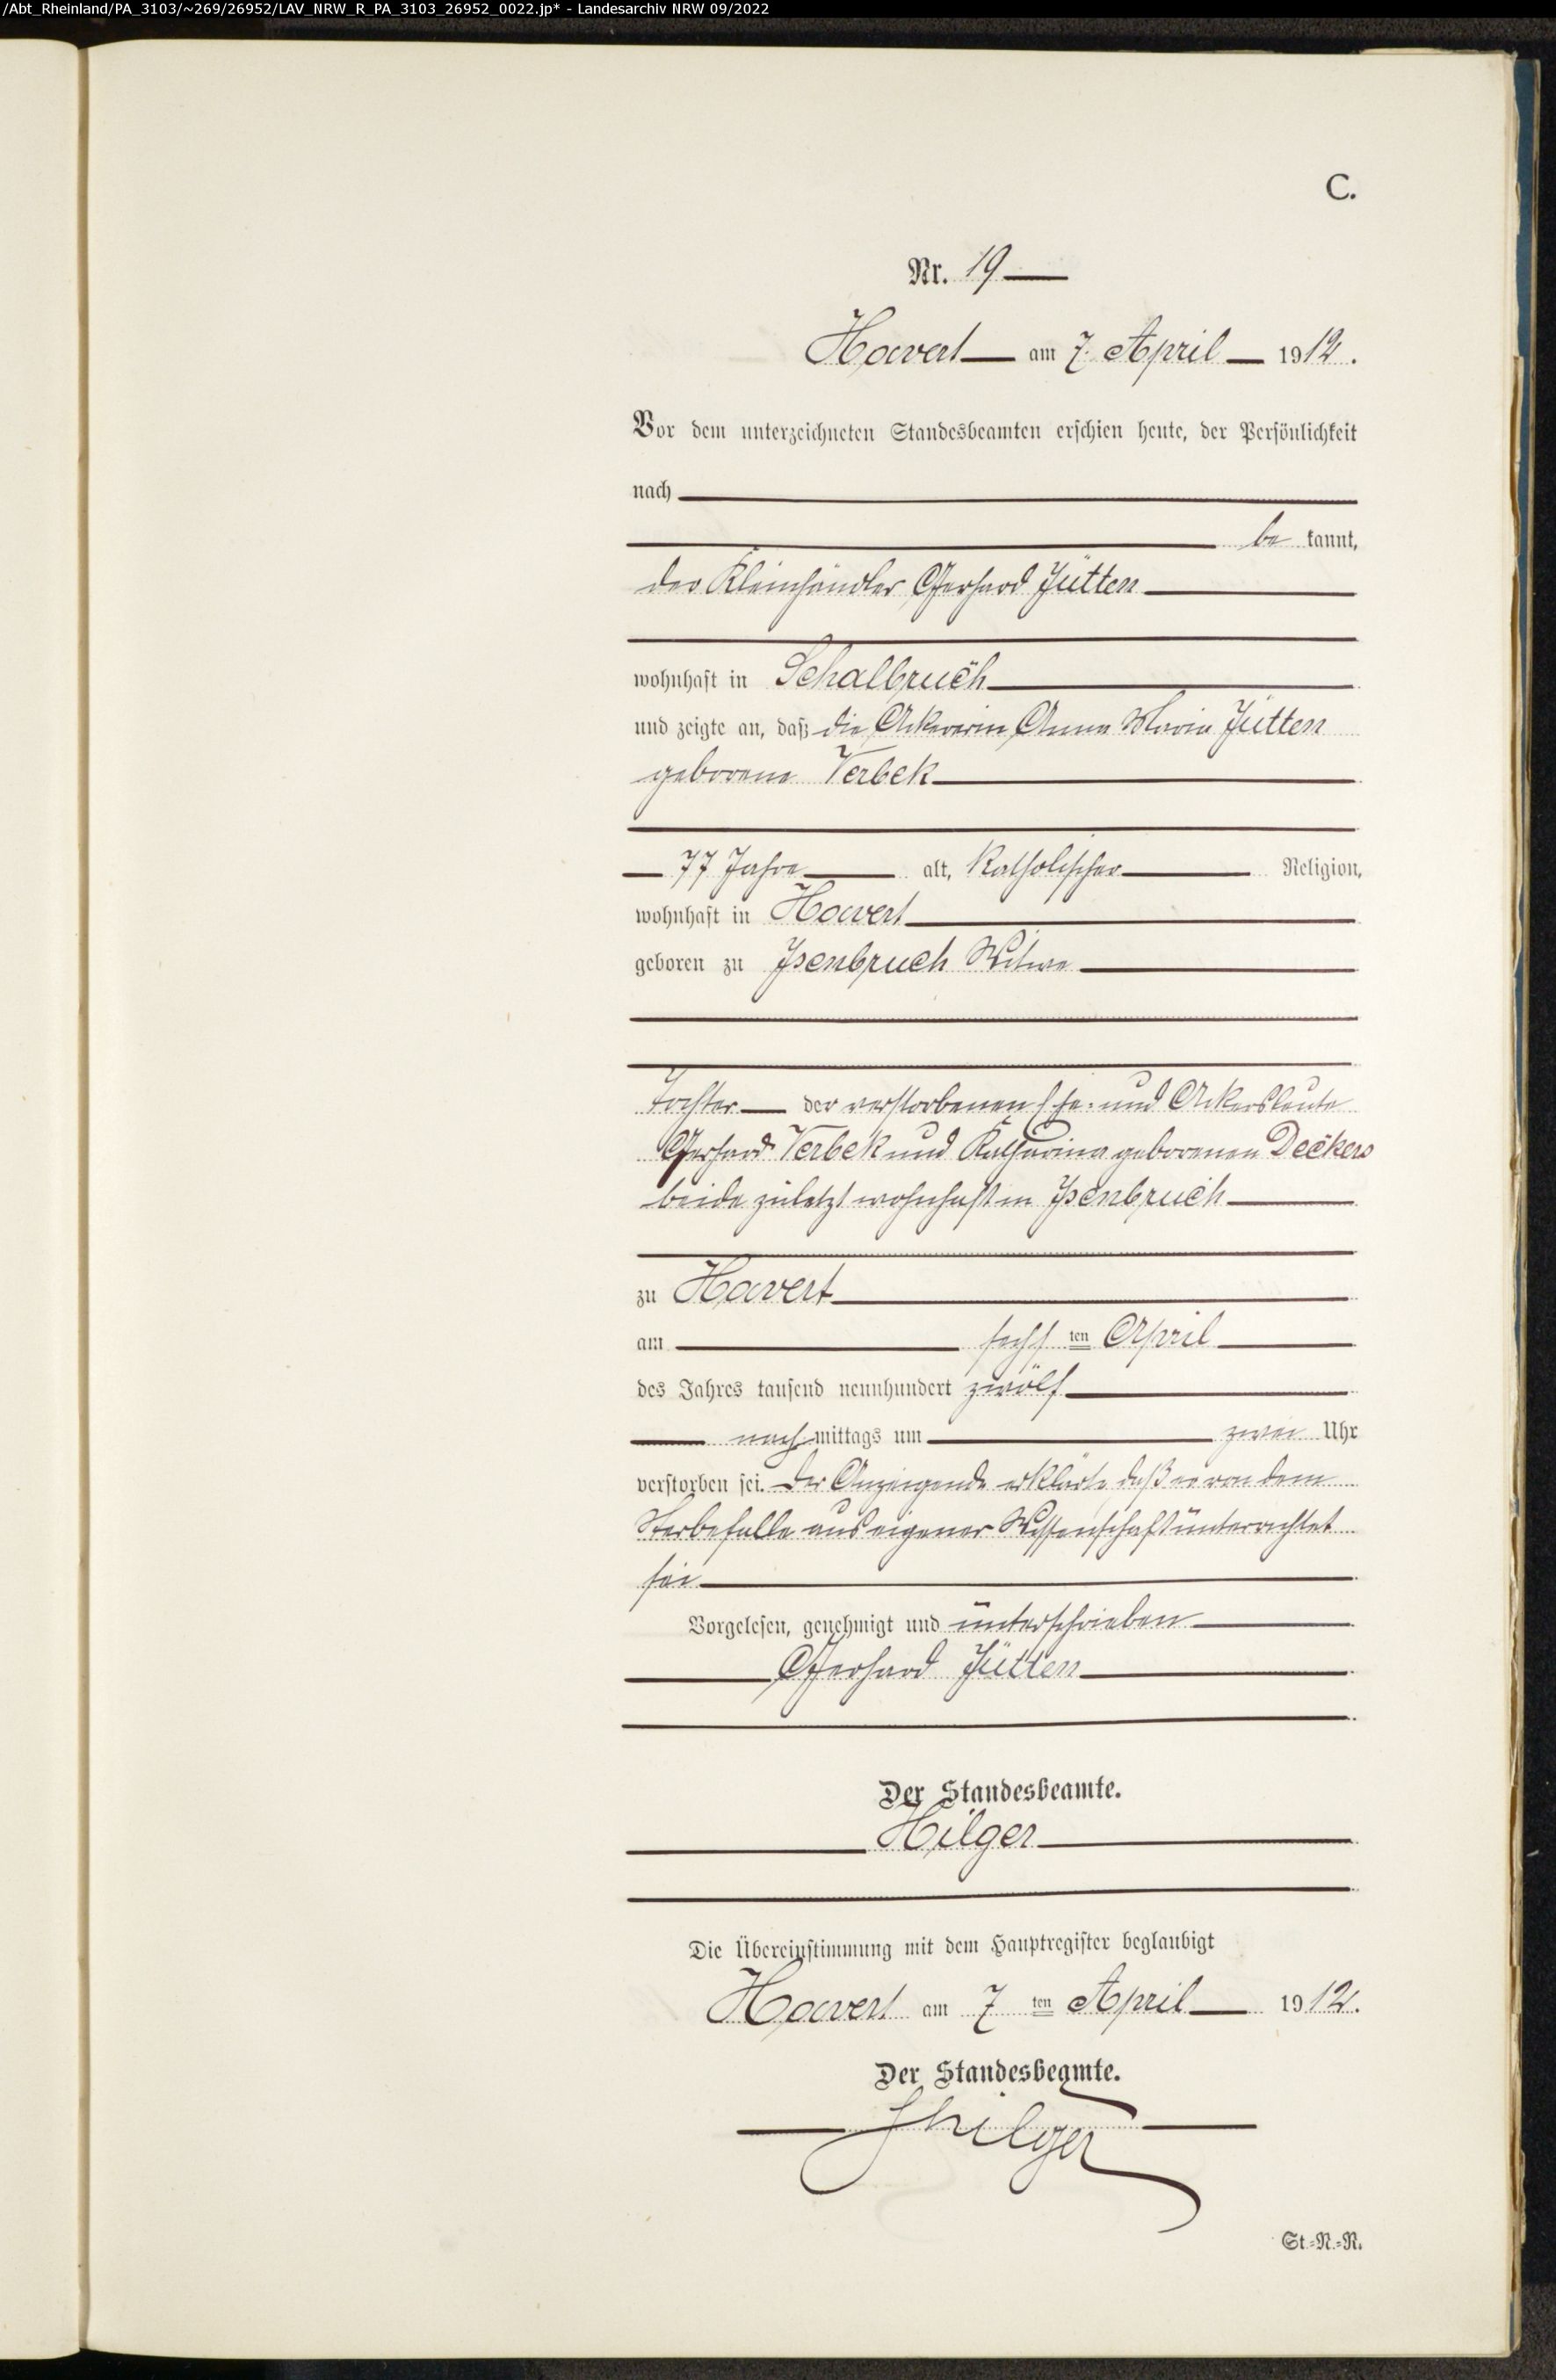 /Abt_Rheinland/PA_3103/~269/26952/LAV_NRW_R_PA_3103_26952_0022.jp* - Landesarchiv NRW 09/2022
C.
Nr. 19
Havert am 7. April 1912.
Vor dem unterzeichneten Standesbeamten erschien heute, der Persönlichkeit
nach
be kannt,
der Kleinhändler Gerhard Jütten
wohnhaft in Schalbruch
und zeigte an, daß die Ackererin Anna Maria Jütten
geborene Verbek
77 Jahre alt, Katholischer Religion,
wohnhaft in Havert
geboren zu Isenbruch Witwe
Tochter der verstorbenen Ehe- und Ackersleute
Gerhard Verbek und Katharina geborenen Deckers
beide zuletzt wohnhaft in Isenbruch
zu Havert
am sechs ten April
des Jahres tausend neunhundert zwölf
nach mittags um zwei Uhr
verstorben sei. Der Anzeigende erklärte daß er von dem
Sterbefalle aus eigener Wissenschaft unterrichtet
sei
Vorgelesen, genehmigt und unterschrieben
Gerhard Jütten
Der Standesbeamte.
Hilger
Die Übereinstimmung mit dem Hauptregister beglaubigt
Havert am 7 ten April 1912.
Der Standesbeamte.
Hilger
St.-N.-R.